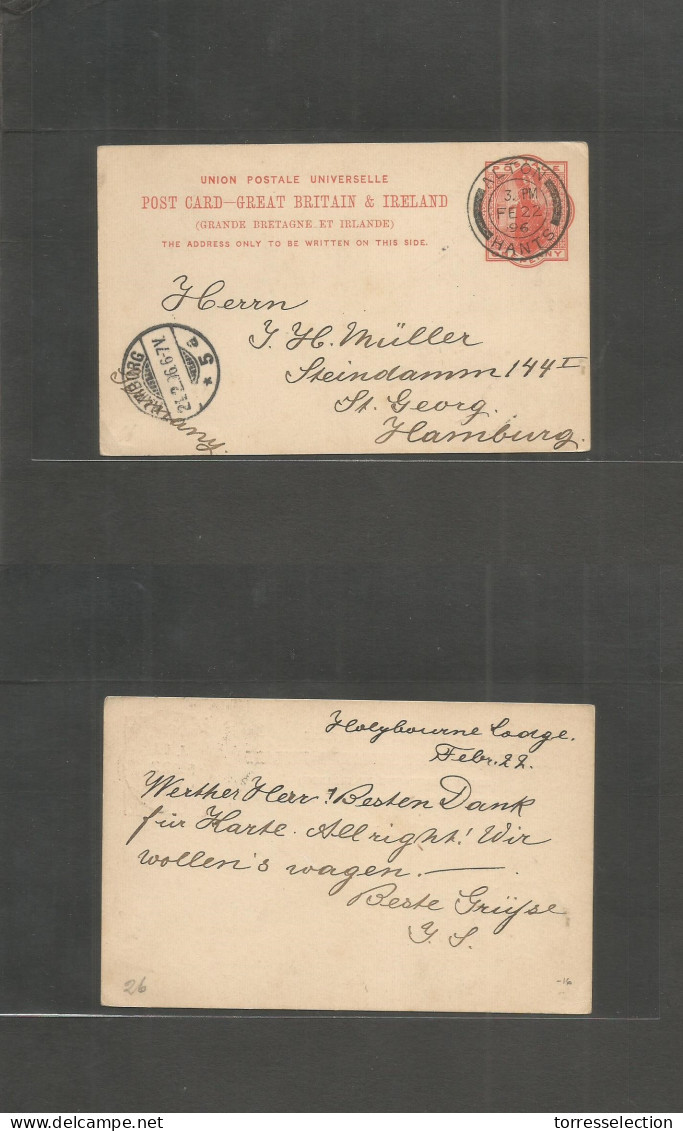 UNION POSTALE UNIVERSELLE
POST CARD—GREAT BRITAIN & IRELAND
(GRANDE BRETAGNE ET IRLANDE)
THE ADDRESS ONLY TO BE WRITTEN ON THIS SIDE.
ALTON
3. PM
FE 22
96
HANTS
Herrn
J. H. Müller
Steindamm 144 I
St. Georg.
Hamburg.
HAMBURG
* 5 a
Germany.
Holybourne Lodge.
Febr. 22.
Werther Herr! Besten Dank
für Karte. All right! Wir
wollen's wagen. —
Beste Grüße
J. S.
26
-16
delcampe.net
torresselection